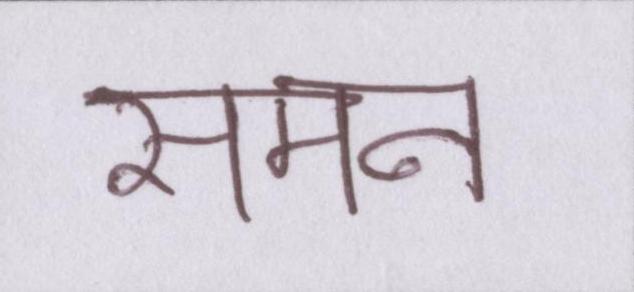 समन